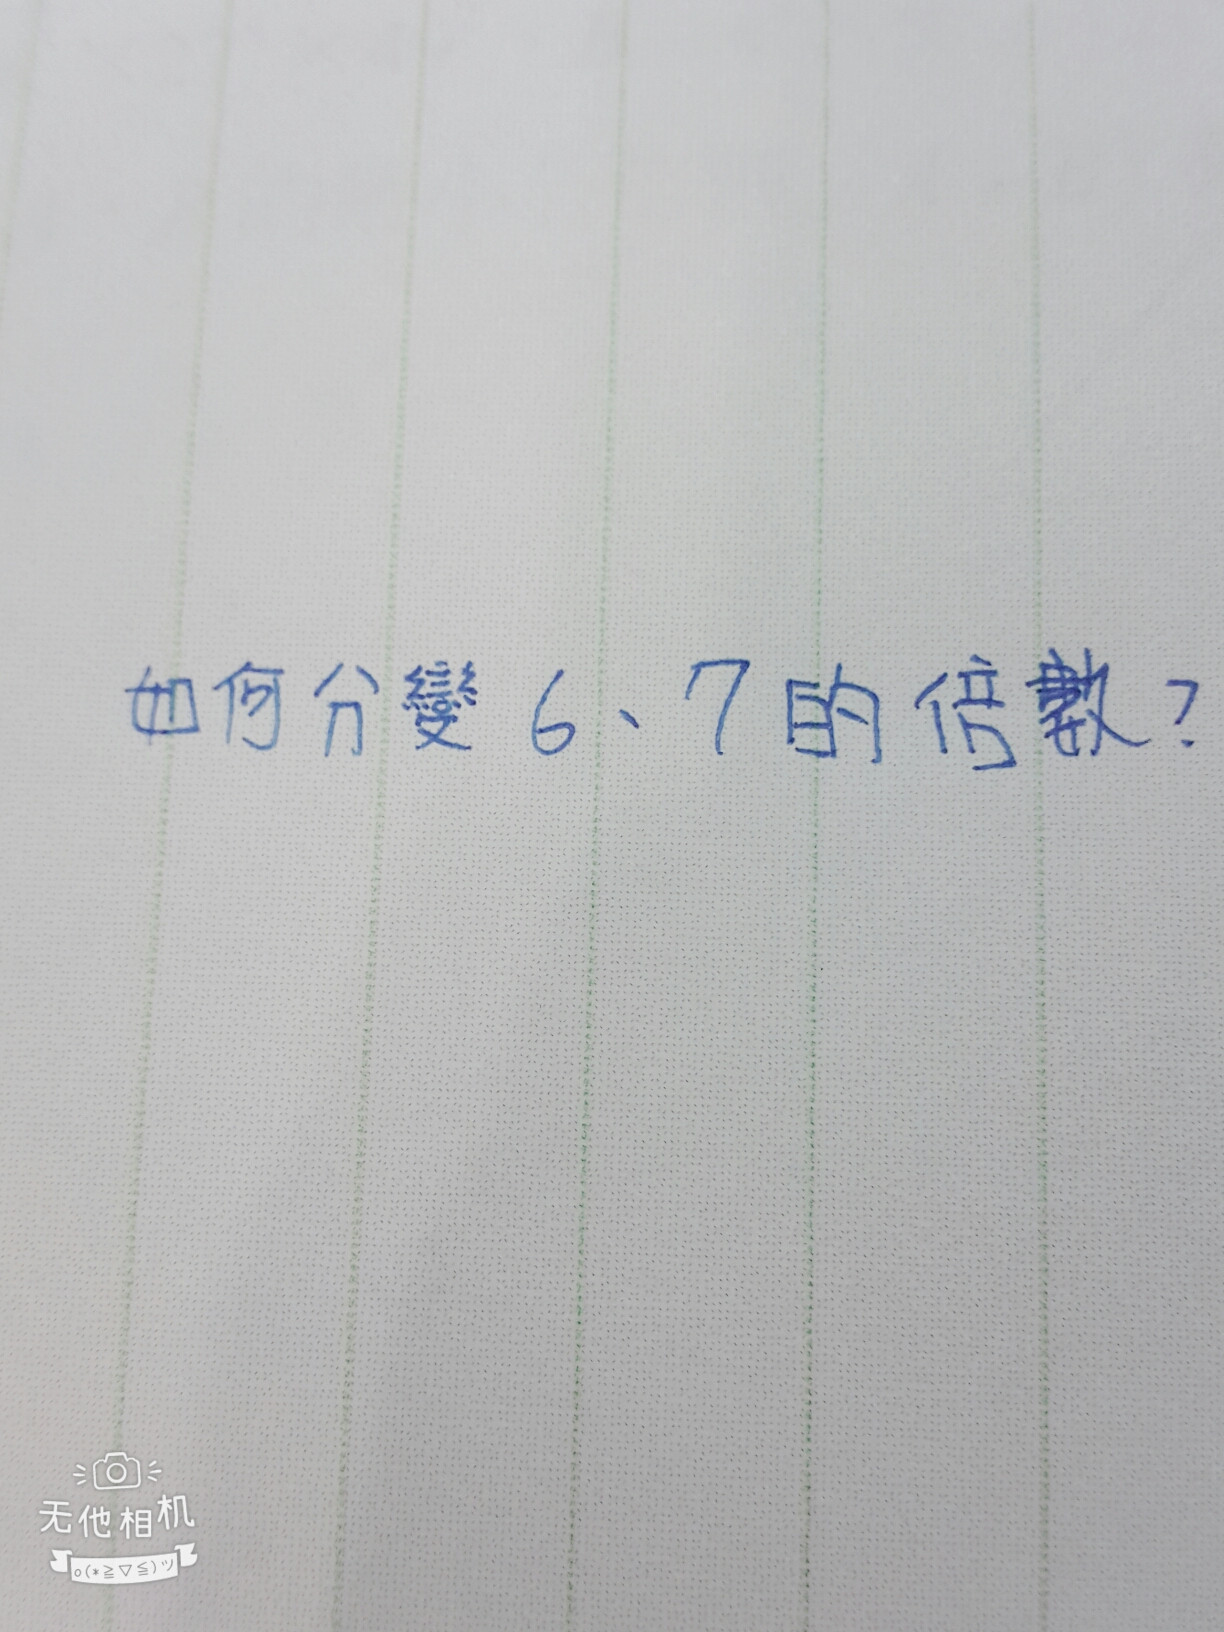 如何分變6、7的倍數?
无他相机
o(*≧▽≦)ツ